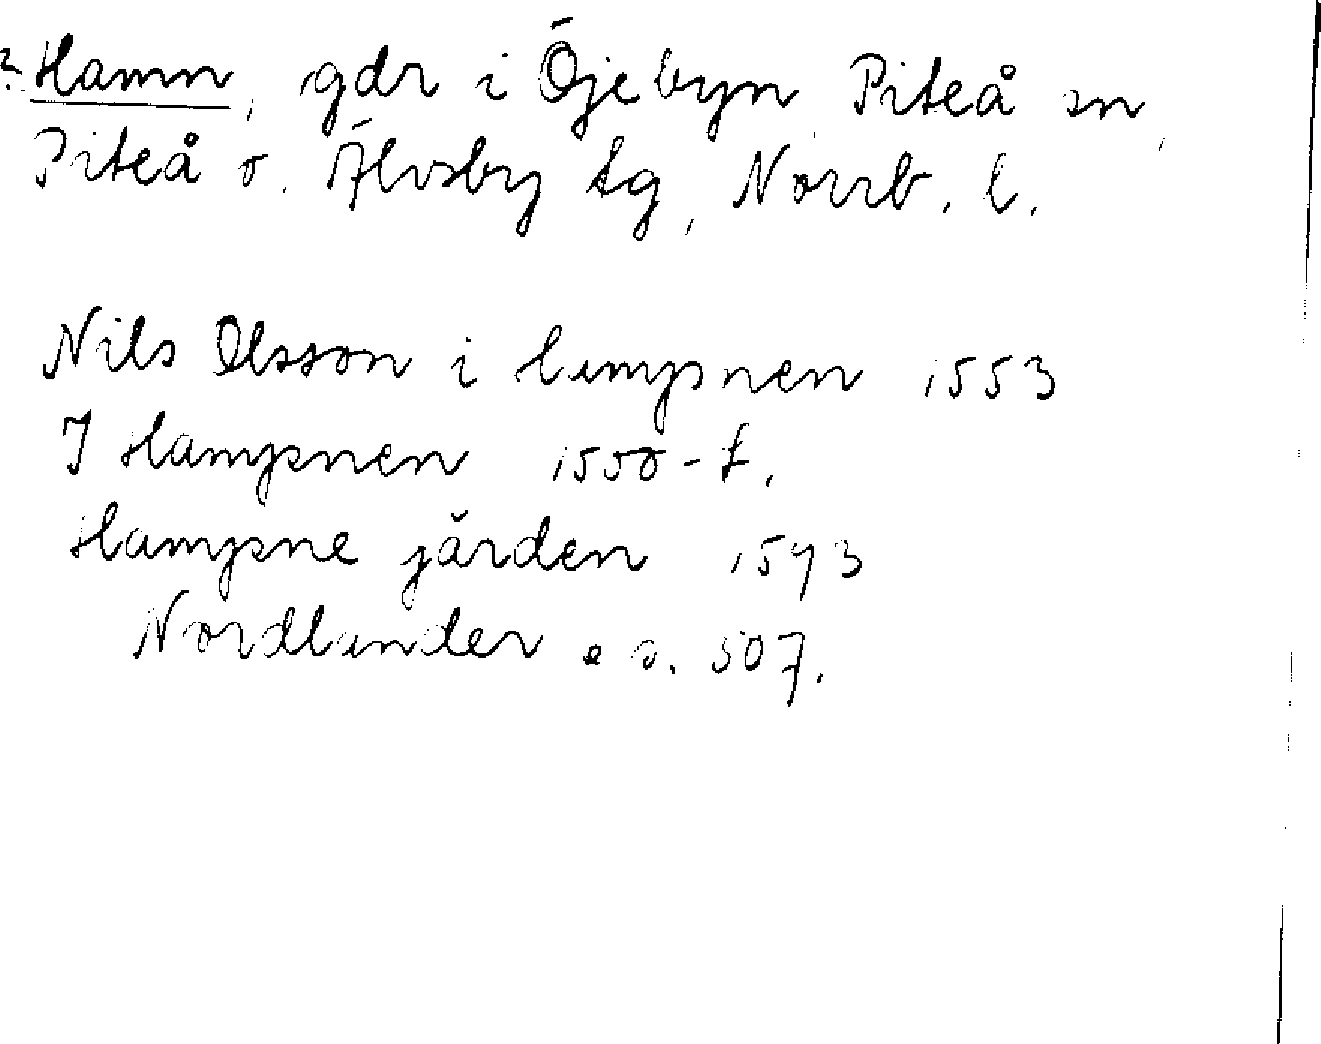 ?. Hamn, gdr i Öjebyn, Piteå sn,
Piteå o. Älvsby tg, Norrb. l.
Nils Olsson i hmpnen 1553
I Hampnen 1550-t.
Hampne jården 1593
Nordlander s. 507.